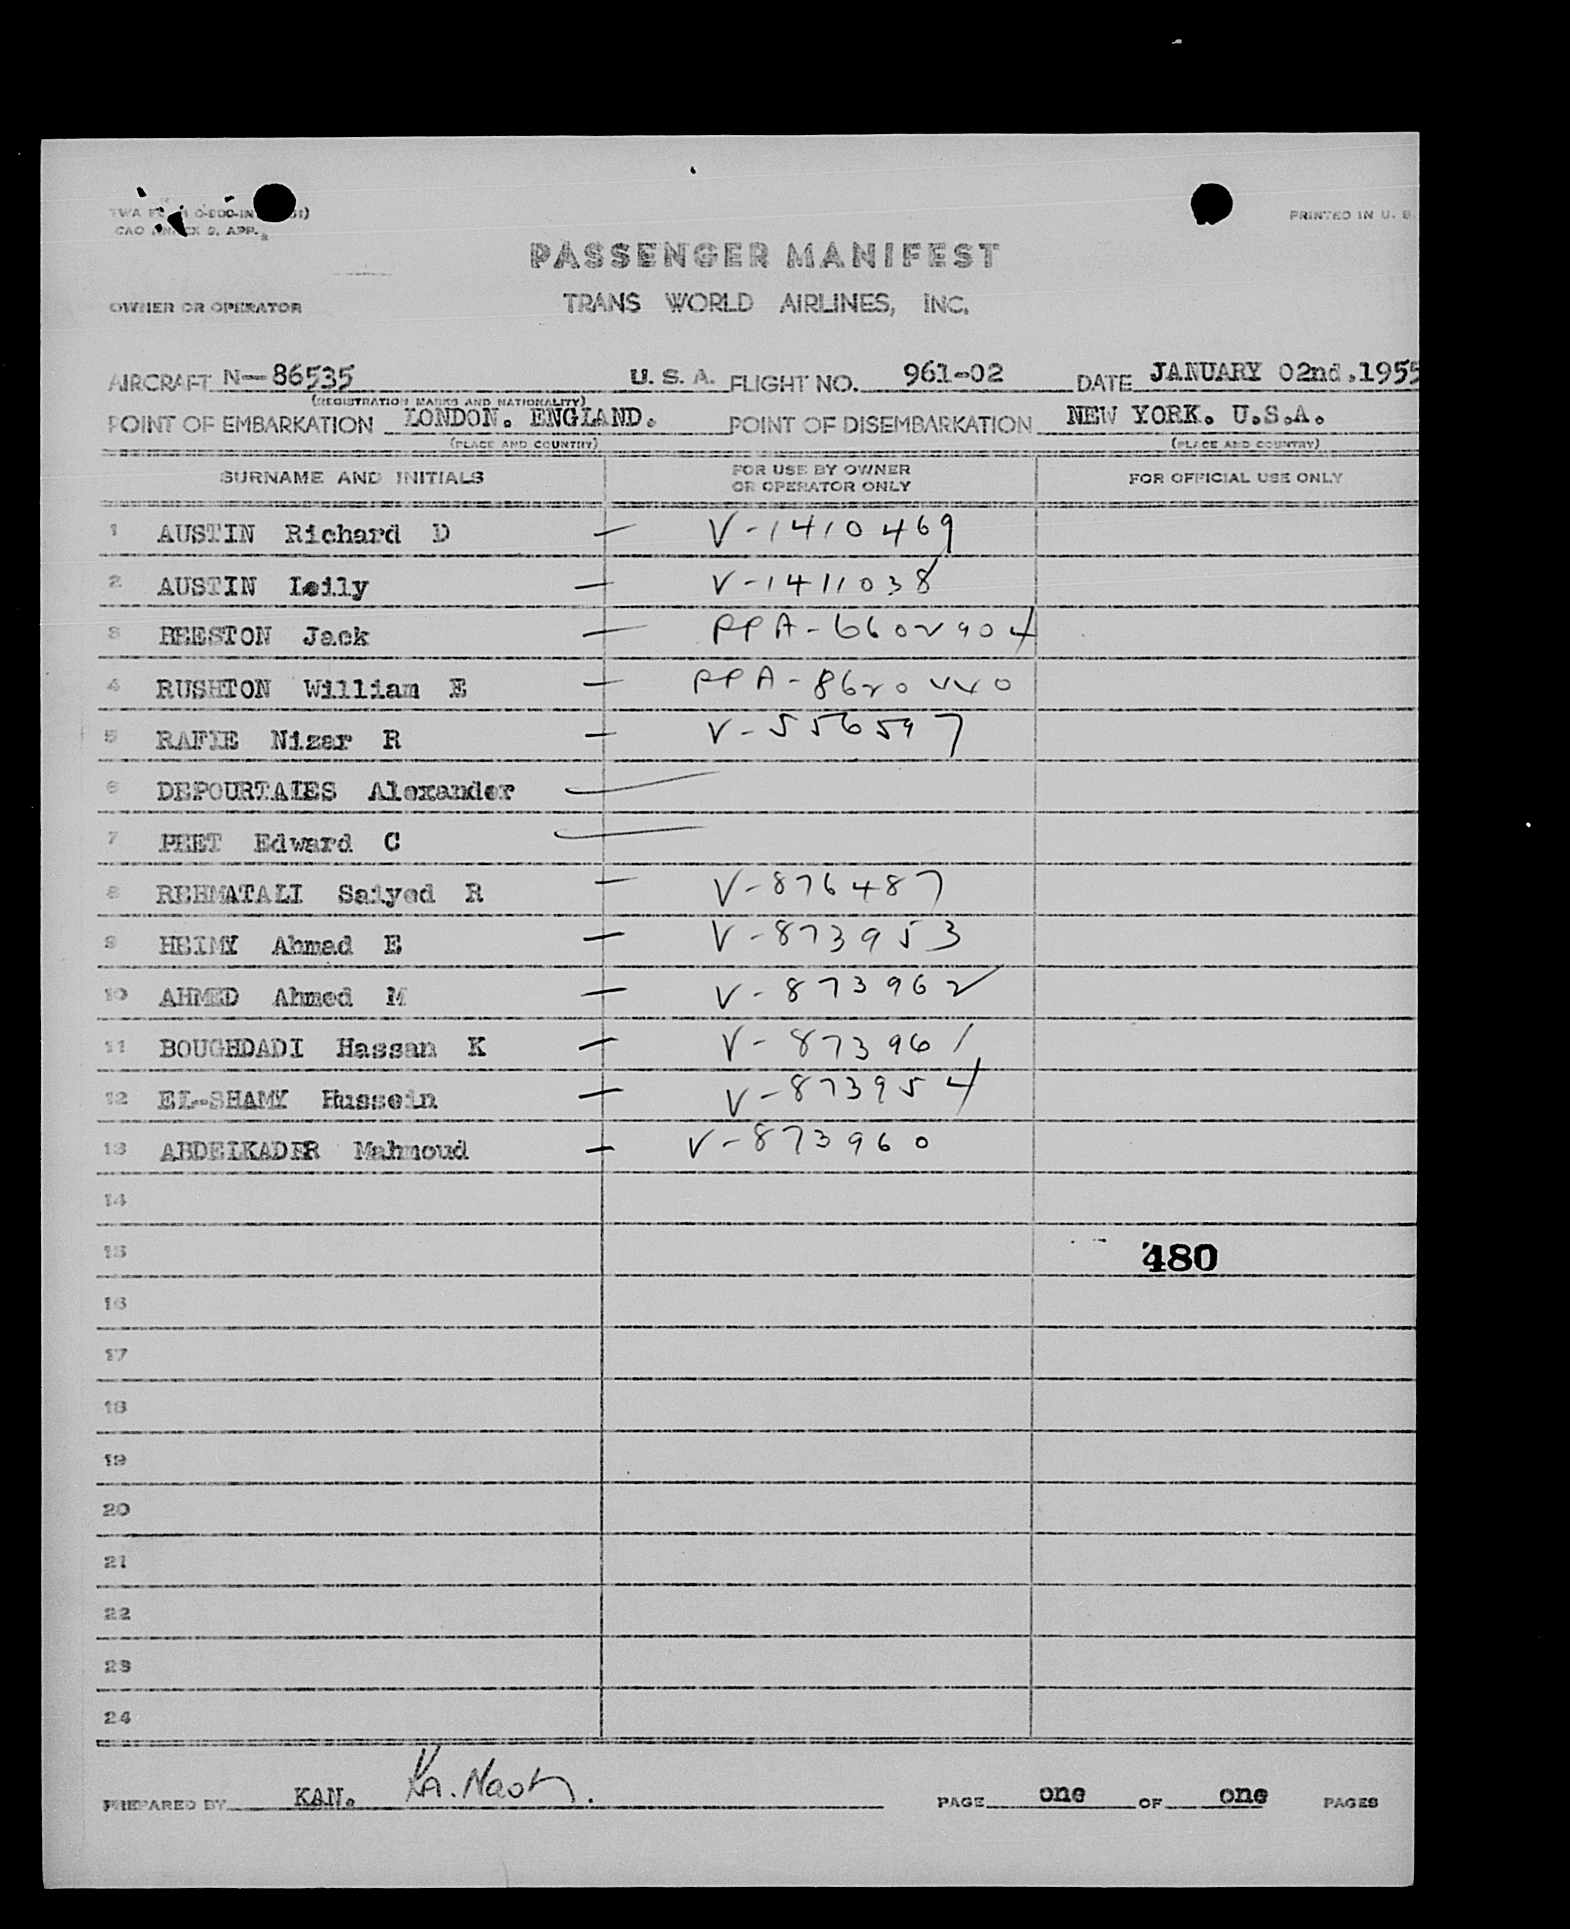 PRINTED IN U. S.
CAO ANNEX 9, APP.
PASSENGER MANIFEST
OWNER OR OPERATOR TRANS WORLD AIRLINES, INC.
AIRCRAFT N-86535 U. S. A. FLIGHT NO. 961-02 DATE JANUARY 02nd.1955
(REGISTRATION MARKS AND NATIONALITY)
POINT OF EMBARKATION LONDON. ENGLAND. POINT OF DISEMBARKATION NEW YORK. U.S.A.
(PLACE AND COUNTRY) (PLACE AND COUNTRY)
SURNAME AND INITIALS FOR USE BY OWNER OR OPERATOR ONLY FOR OFFICIAL USE ONLY
1 AUSTIN Richard D — V-1410469
2 AUSTIN Leily — V-1411038
3 BEESTON Jack — PPA-6602904
4 RUSHTON William E — PPA-8620220
5 RAFIE Nizar R — V-556597
6 DEPOURTAIES Alexander
7 PEET Edward C
8 REHMATALI Saiyed R — V-876487
9 HEIMY Ahmad E — V-873953
10 AHMED Ahmed M — V-873962
11 BOUGHDADI Hassan K — V-873961
12 EL-SHAMY Hussein — V-873954
13 ABDELKADER Mahmoud — V-873960
14
15 480
16
17
18
19
20
21
22
23
24
PREPARED BY KAN. PAGE one OF one PAGES